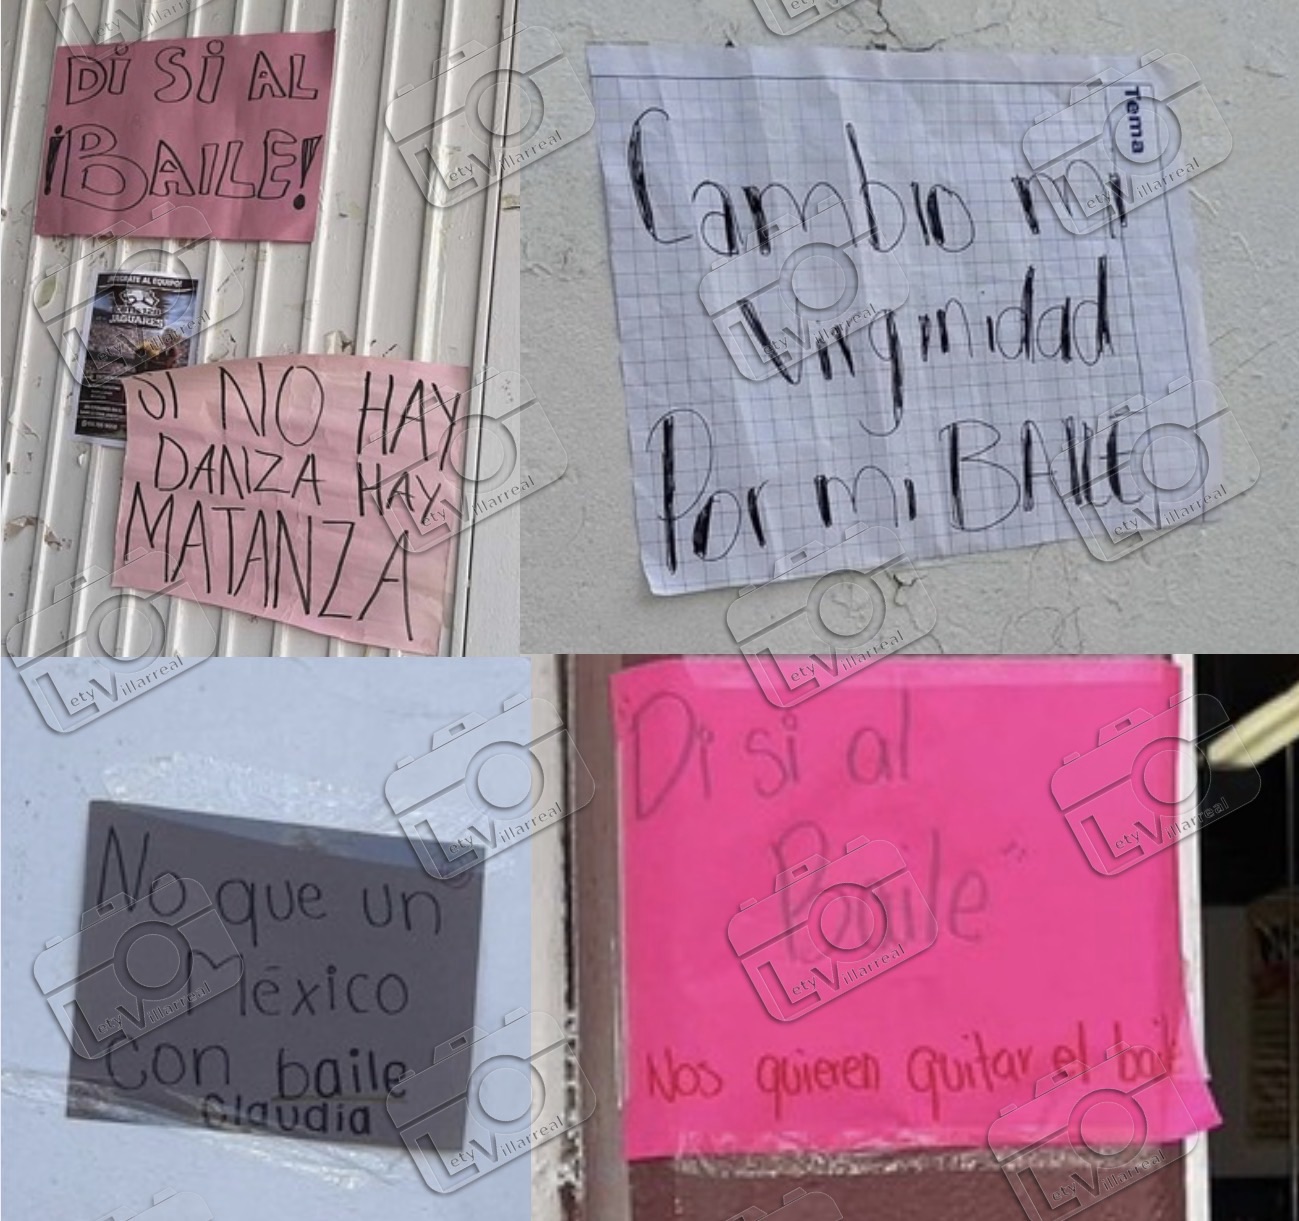 DI SI AL
¡BAILE!
¡INTÉGRATE AL EQUIPO!
JAGUARES
SI NO HAY
DANZA HAY
MATANZA
Tema
Cambio mi
Virginidad
Por mi BAILE
No que un
México
Con baile
Claudia
Di si al
Baile
Nos quieren quitar el baile
Lety Villarreal